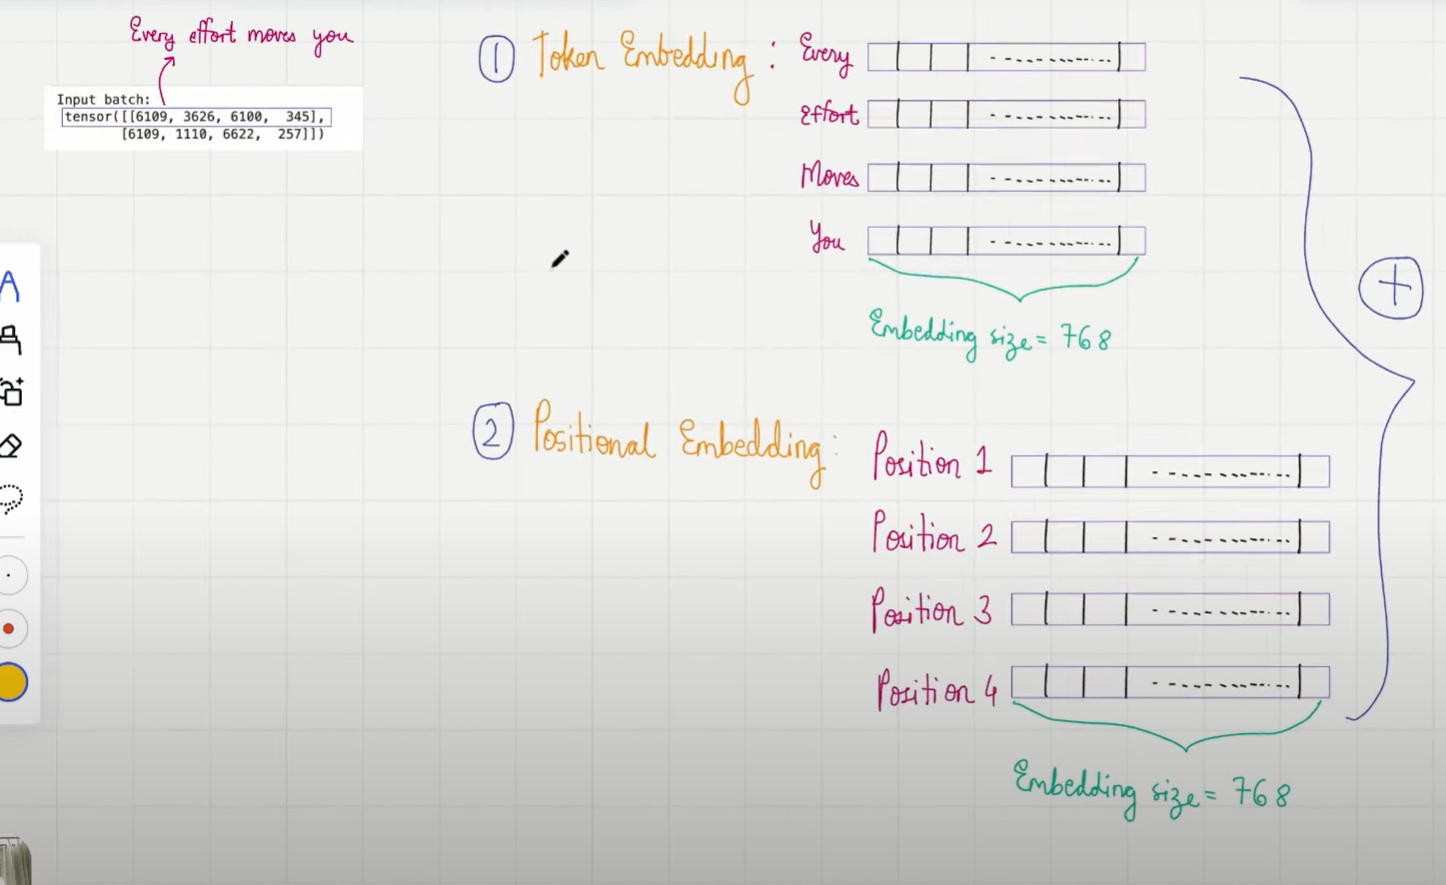 Every effort moves you
Input batch:
tensor([[6109, 3626, 6100, 345],
[6109, 1110, 6622, 257]])
1 Token Embedding : Every
Effort
Moves
You
Embedding size = 768
+
2 Positional Embedding : Position 1
Position 2
Position 3
Position 4
Embedding size = 768